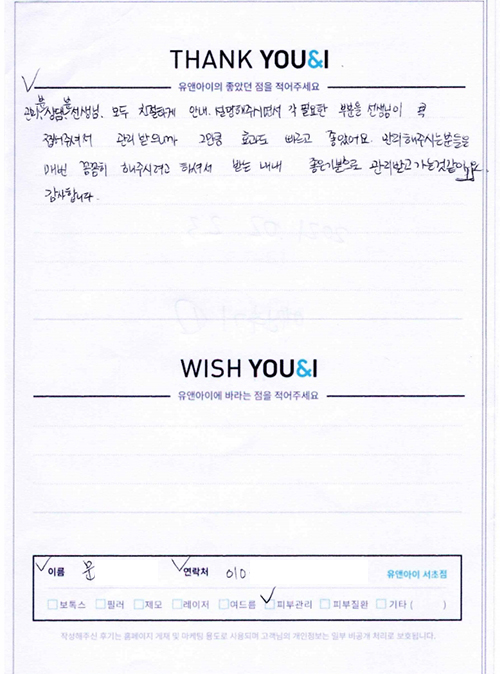 THANK YOU&I
유앤아이의 좋았던 점을 적어주세요
관리분, 상담분 선생님, 모두 친절하게 안내, 설명해주시면서 각 필요한 부분을 선생님이 콕
집어주셔서 관리 받으니까 그만큼 효과도 빠르고 좋았어요. 관리해주시는분들을
매번 꼼꼼히 해주시려고 하셔서 받는 내내 좋은기분으로 관리받고가는것같아요.
감사합니다.
WISH YOU&I
유앤아이에 바라는 점을 적어주세요
이름 문 연락처 010 유앤아이 서초점
보톡스 필러 제모 레이저 여드름 피부관리 피부질환 기타 ( )
작성해주신 후기는 홈페이지 게재 및 마케팅 용도로 사용되며 고객님의 개인정보는 일부 비공개 처리로 보호됩니다.